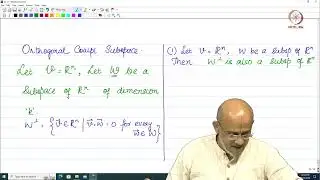 Orthogonal Compl Subspace.
Let V = ℝⁿ, Let W be a
subspace of ℝⁿ of dimension
'k'.
W^⊥ = { v⃗ ∈ ℝⁿ | v⃗ · w⃗ = 0 for every
w⃗ ∈ W }
(1) Let V = ℝⁿ, W be a subsp of ℝⁿ
Then W^⊥ is also a subsp of ℝⁿ